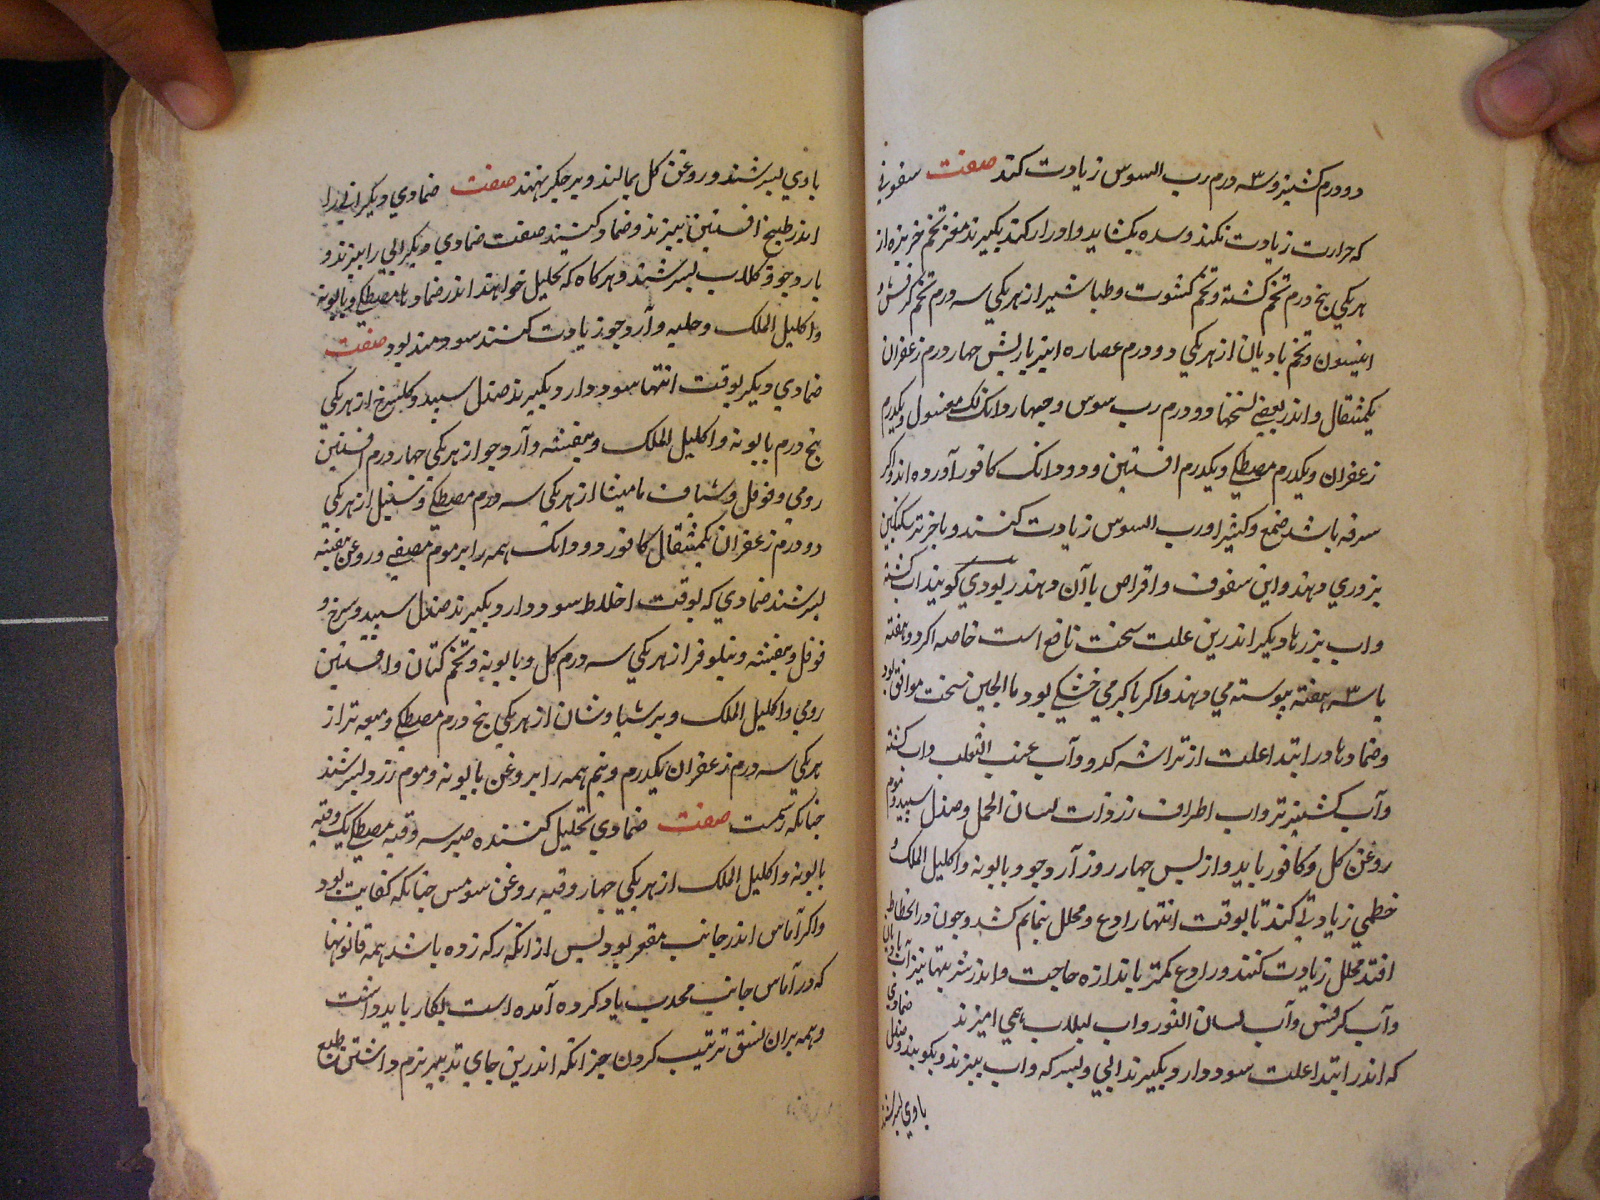 دو درم کشنیز و ۳ درم رب السوس زیادت کند صفت سفوفی
که حرارت زیادت نکند و سده بکشاید و ادرار کند بکیرند مغز تخم خربزه از
هریکی پنج درم تخم کشته و تخم کشوت و طباشیر از هریکی سه درم تخم کرفس و
انیسون و تخم بادیان از هریکی دو درم عصاره امیرباریس چهار درم زعفران
یکمثقال و اندر بعضی نسختها دو درم رب سوس و چهار دانک لک مغسول و یکدرم
زعفران و یکدرم مصطکی و یکدرم افسنتین و دو دانک کافور آورده اند و اکر
سرفه باشد صمغ و کثیرا و رب السوس زیادت کنند و با سکنکبین
بزوری دهند و این سفوف و اقراص با آن دهند ریودی کویند اب کشته
و اب بزرها دیکر اندرین علت سخت نافع است خاصه اکر دو هفته
یا ۳ هفته پیوسته می دهند و اکر با کرمی خشکی بود ما الجبن سخت موافق بود
و ضمادها در ابتداء علت از تراشه کدو و آب عنب الثعلب و اب کشته
و آب کشنیز تر و اب اطراف رز و ات لسان الحمل و صندل سپید و موم
روغن کل و کافور باید و از پس چهار روز آرد جو و بابونه و اکلیل الملک و
خطمی زیادت کند تا بوقت انتها رادع و محلل بنمایم کشد و چون در انحطاط
افتد محلل زیادت کنند و رادع کمتر باندازه حاجت و اندر شربتها نیز آب بادیان
و آب کرفس و آب لسان الثور و اب لبلاب همی امیزند ضمادی
که اندر ابتداء علت سود دارد بکیرند ابی و بسرکه و اب بپزند و بکوبند و صندل
بادی بسرشند
بادی بسرشند و روغن کل بمالند و بر جکر نهند صفت ضمادی دیکر ابی را
اندر طبیخ افسنتین بپزند و ضماد کنند صفت ضمادی دیکر ابی را بپزند و
بارد جو و کلاب بسرشند و هرکاه که تحلیل خواهند اندر ضمادها مصطکی و بابونه
و اکلیل الملک و حلبه و آرد جو زیادت کنند سودمند بود صفت
ضمادی دیکر بوقت انتها سود دارد بکیرند صندل سپید و کلسرخ از هریکی
پنج درم بابونه و اکلیل الملک و بنفشه و آرد جو از هریکی چهار درم افسنتین
رومی و فوفل و شیاف مامیثا از هریکی سه درم مصطکی و سنبل از هریکی
دو درم زعفران یکمثقال کافور دو دانک همه را بر موم مصفی و روغن بنفشه
بسرشند ضمادی که بوقت اخلاط سود دارد بکیرند صندل سپید و سرخ و
فوفل و بنفشه و نیلوفر از هریکی سه درم کل و بابونه و تخم کتان و افسنتین
رومی و اکلیل الملک و پرسیاوشان از هریکی پنج درم مصطکی و میعه تر از
هریکی سه درم زعفران یکدرم و نیم همه را بر وغن بابونه و موم زرد بسرشند
چنانکه رسمت صفت ضمادی تحلیل کننده صبر سه وقیه مصطکی یک وقیه
بابونه و اکلیل الملک از هریکی چهار وقیه روغن سوسن چنانکه کفایت بود
و اکر آماس اندر جانب مقعر بود پس از انکه رک زده باشد همه قانونها
که در آماس جانب محدب یاد کرده آمده است بکار باید داشت
و همه بران نسق ترتیب کردن جز انکه اندرین جای تدبیر نرم داشتن طبع